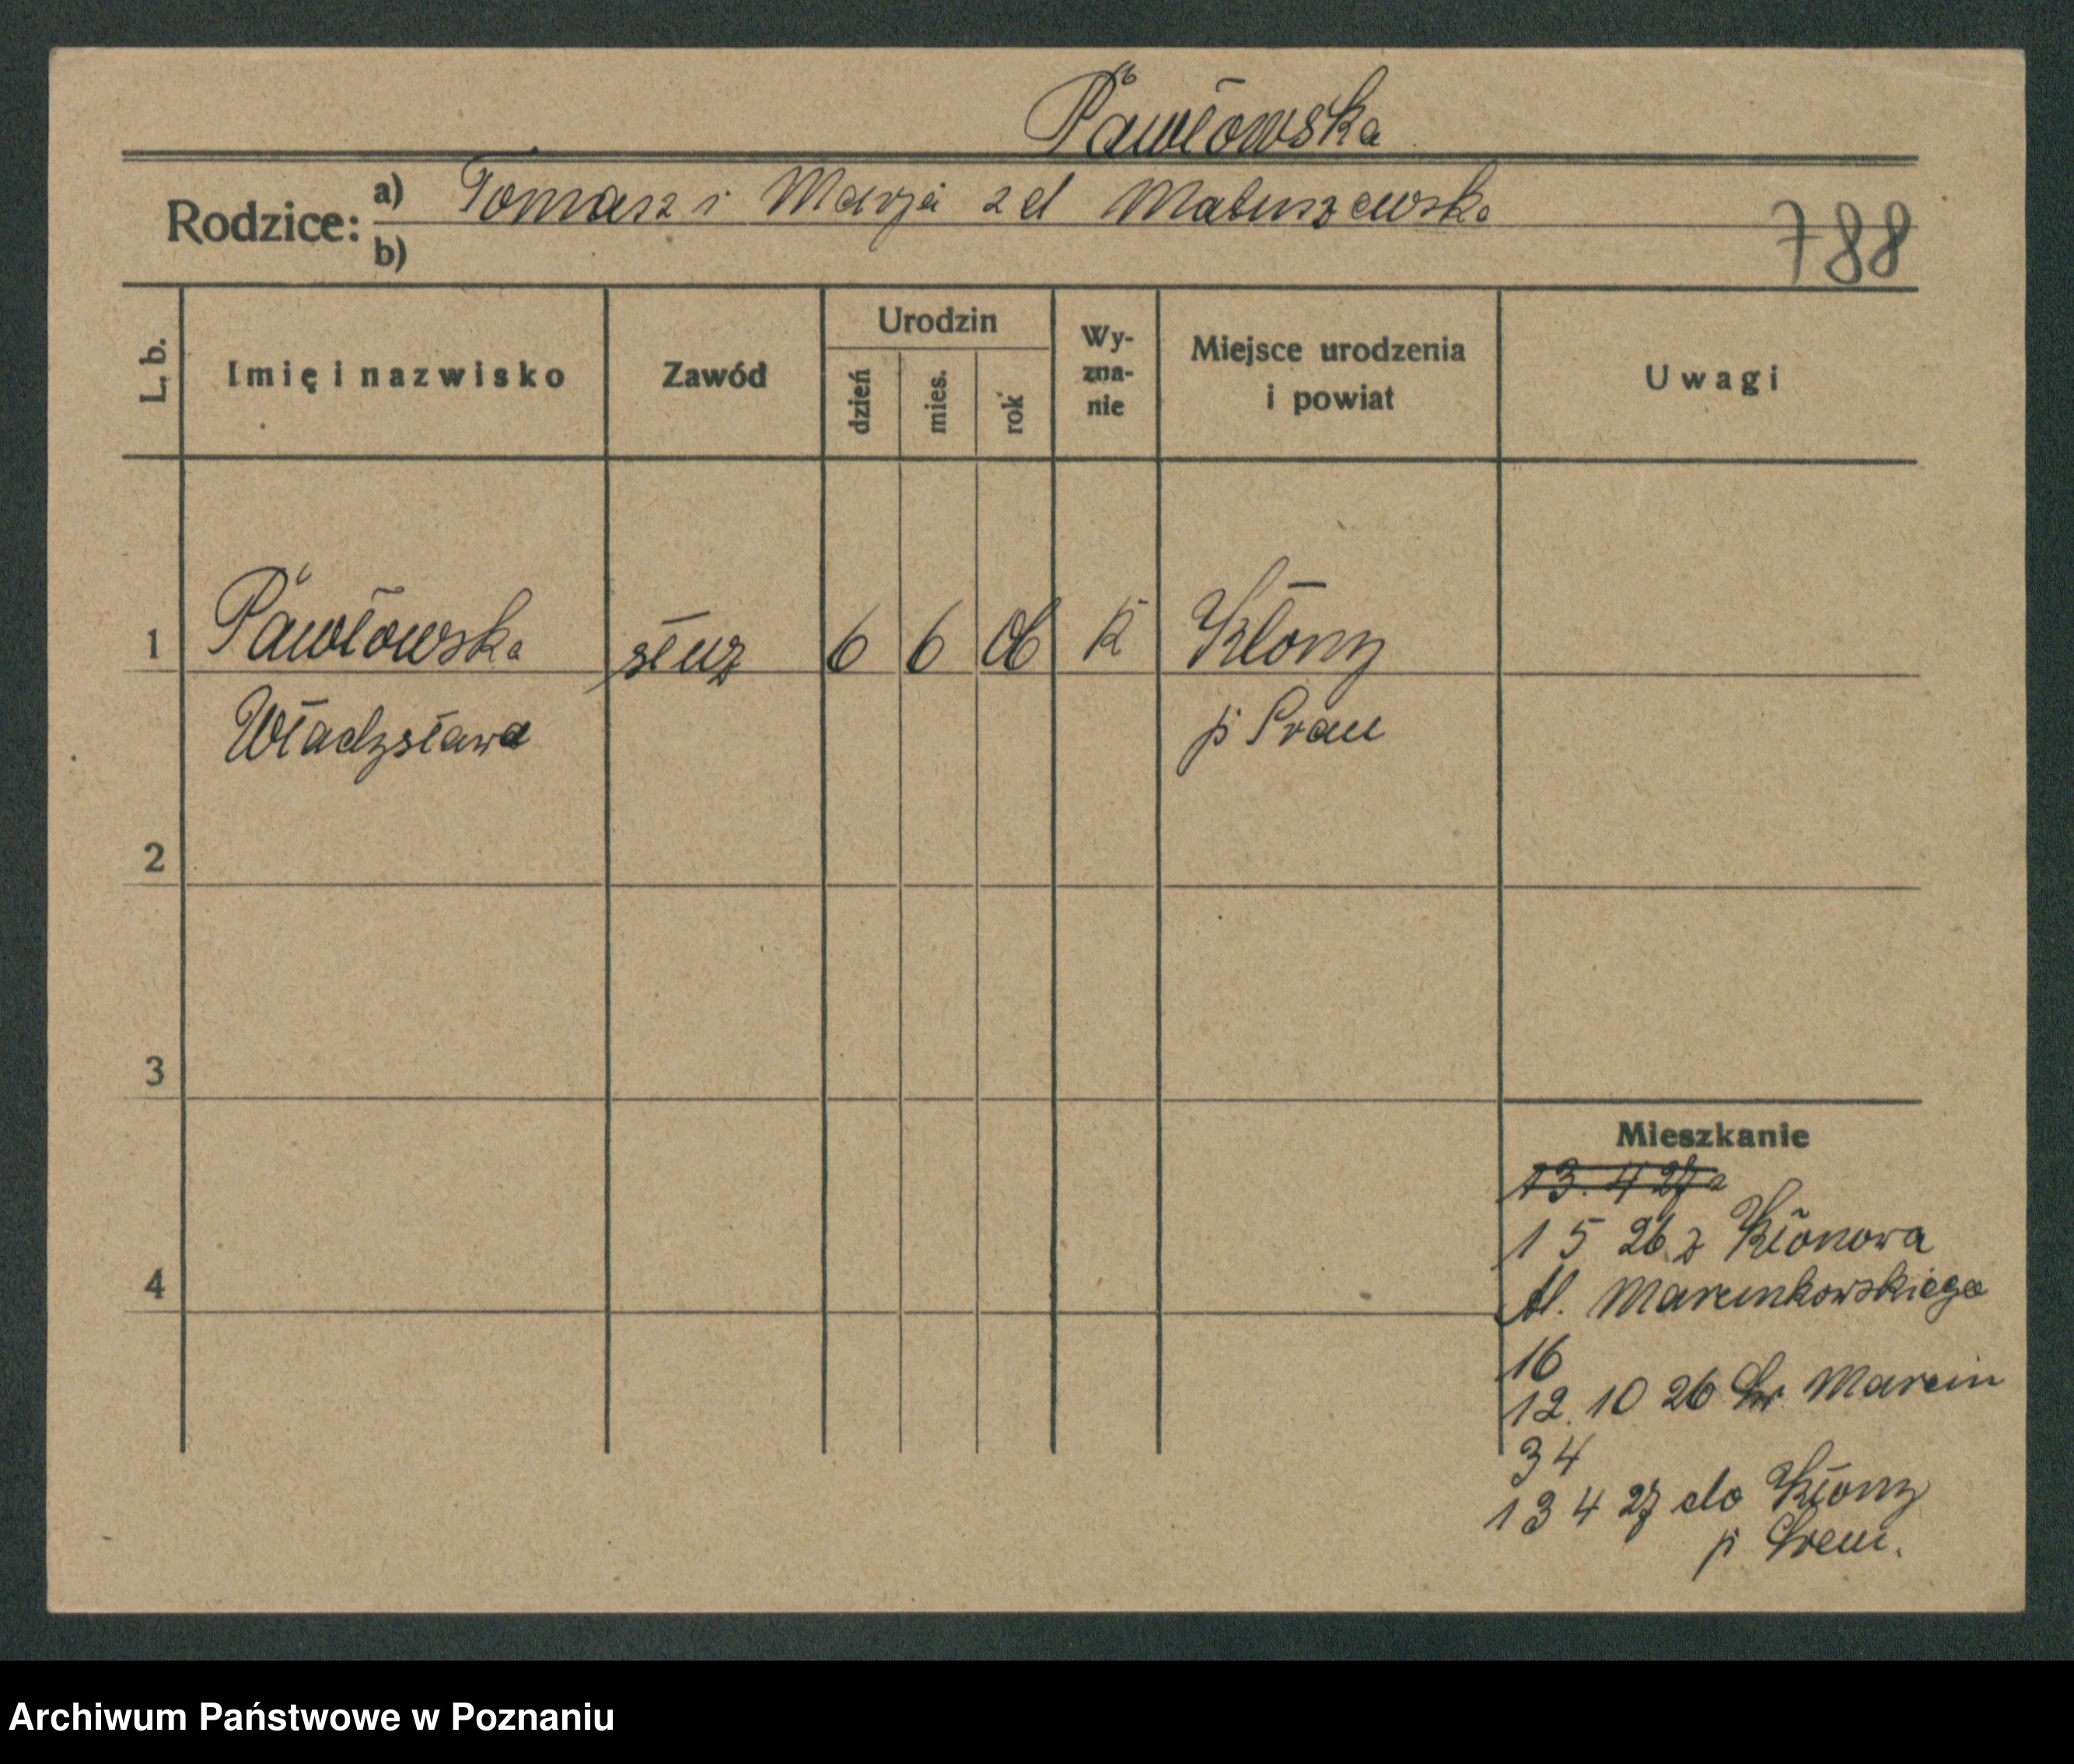 Pawłowska
Rodzice: a) Tomasz i Marja z d Matuszewska
b)
788
L. b. Imię i nazwisko Zawód Urodzin dzień mies. rok Wyznanie Miejsce urodzenia i powiat Uwagi
1 Pawłowska służ 6 6 06 K Kłony
Władysława p
2
3
4
Mieszkanie
13. 4 27
1 5 26 z Kłonowa
Al. Marcinkowskiego
16
12. 10 26 Św Marcin
34
13 4 27 do Kłony
p Śrem.
Archiwum Państwowe w Poznaniu